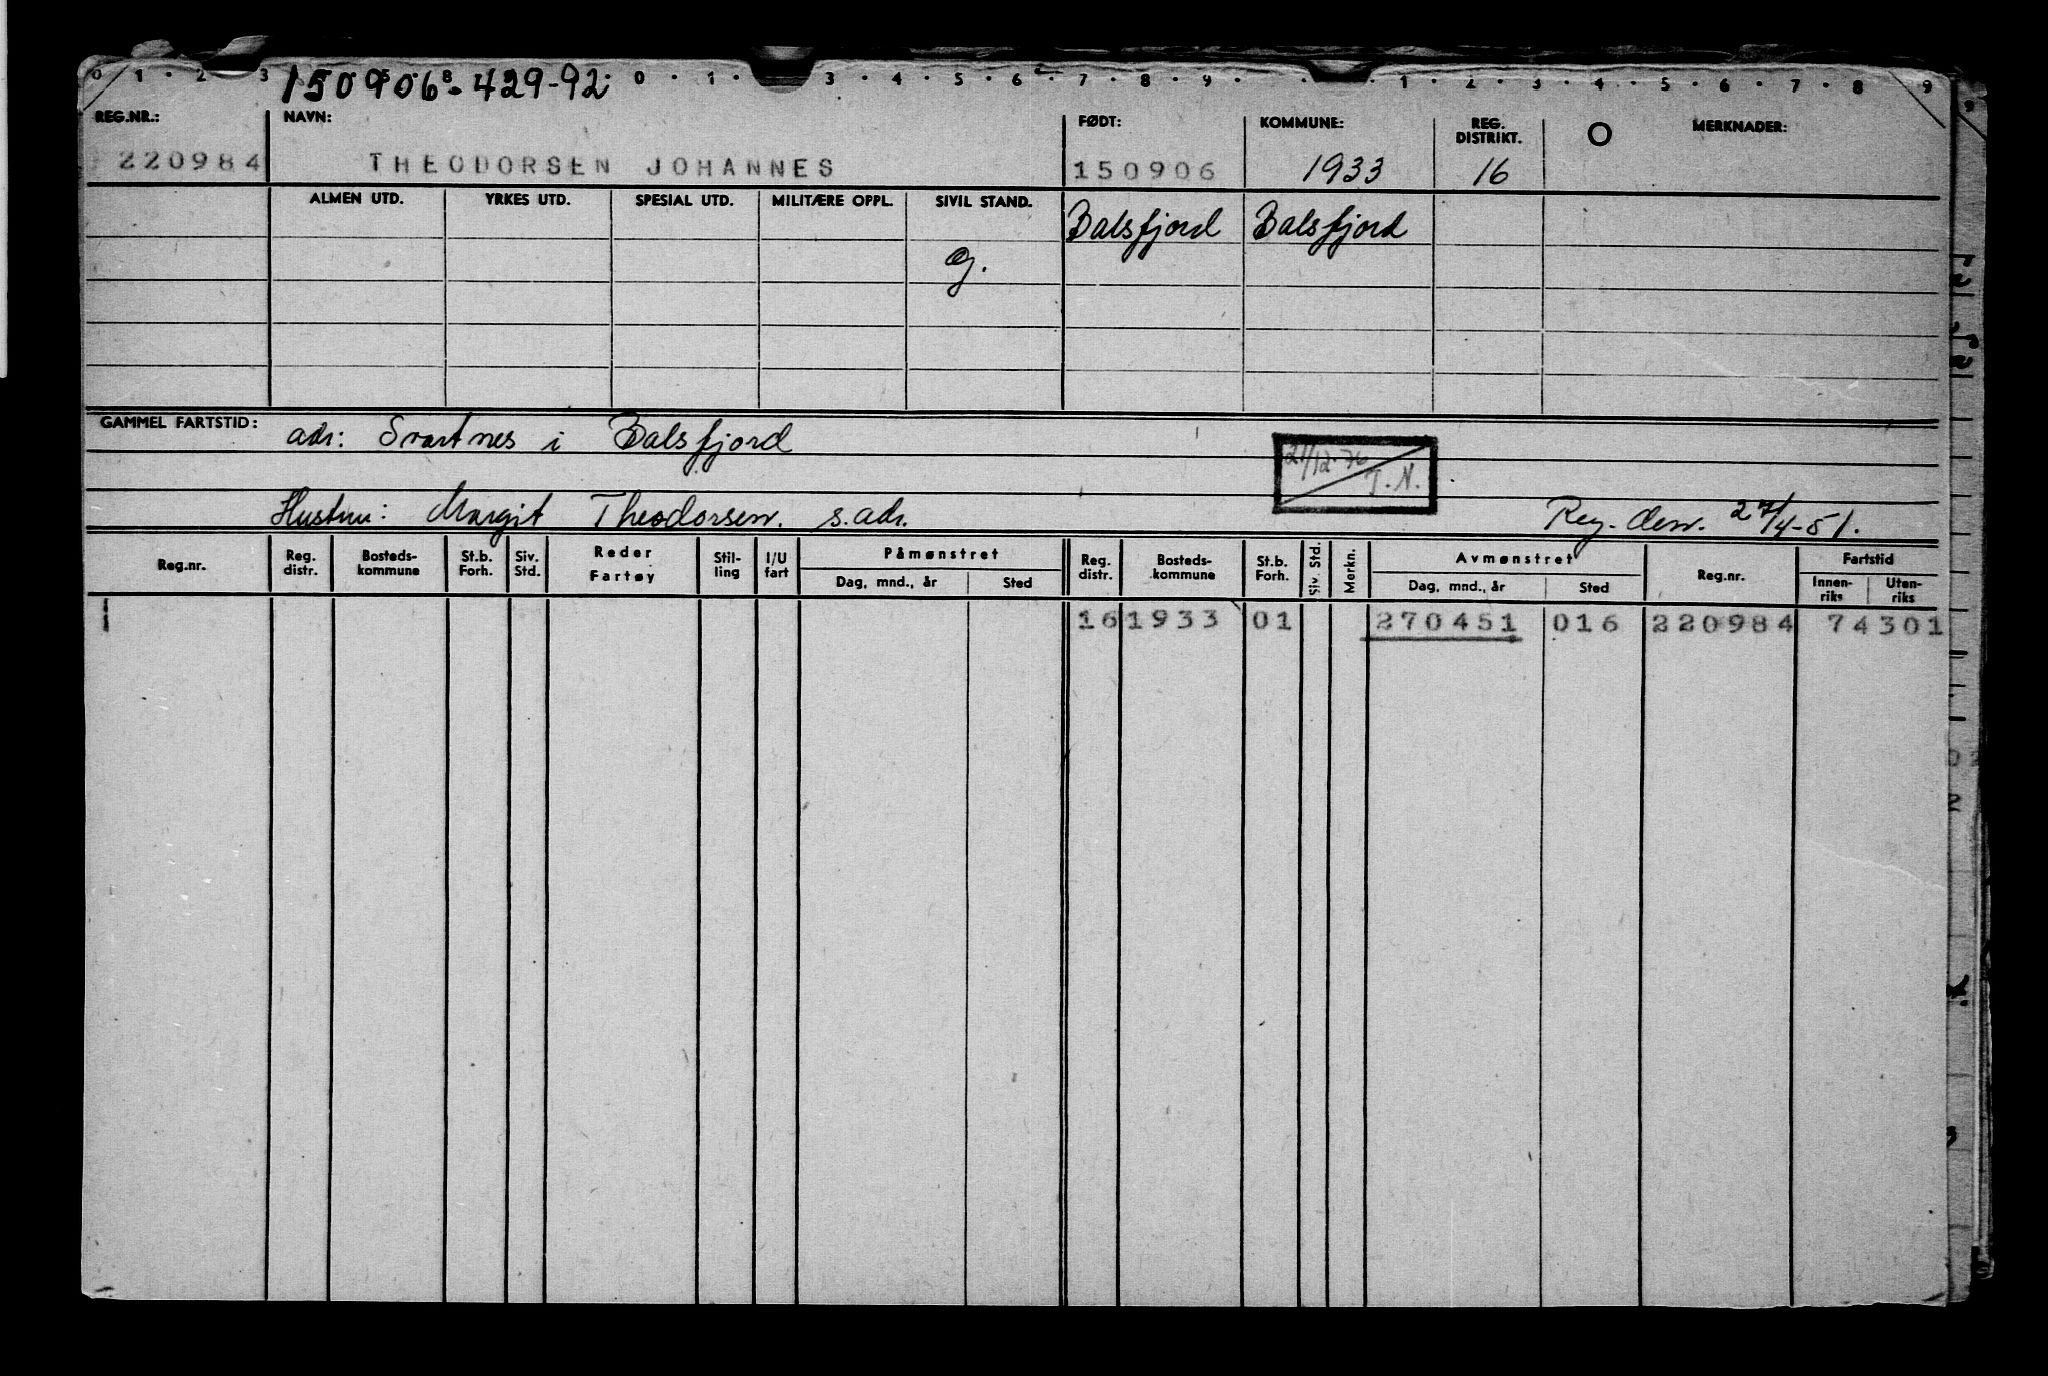 0 1 · 2 · 3 150906 - 429-92 0 · 1 · 3 · 4 · 5 · 6 · 7 · 8 · 9 · 1 · 2 · 3 · 4 · 5 · 6 · 7 · 8 · 9
REG.NR.: NAVN: FØDT: KOMMUNE: REG. DISTRIKT. MERKNADER:
220984 THEODORSEN JOHANNES 150906 1933 16
ALMEN UTD. YRKES UTD. SPESIAL UTD. MILITÆRE OPPL. SIVIL STAND. Balsfjord Balsfjord
g.
GAMMEL FARTSTID: adr: Svartnes i Balsfjord
21/12-76 T.N.
Hustru: Margit Theodorsen. s. adr. Reg. den. 27/4-51.
Reg.nr. Reg. distr. Bosteds-kommune St.b. Forh. Siv. Std. Reder Fartøy Stil-ling I/U fart Påmønstret Dag, mnd., år Sted Reg. distr. Bosteds-kommune St.b. Forh. Siv. Std. Merkn. Avmønstret Dag, mnd., år Sted Reg.nr. Fartstid Innen-riks Uten-riks
16 1933 01 270451 016 220984 74301